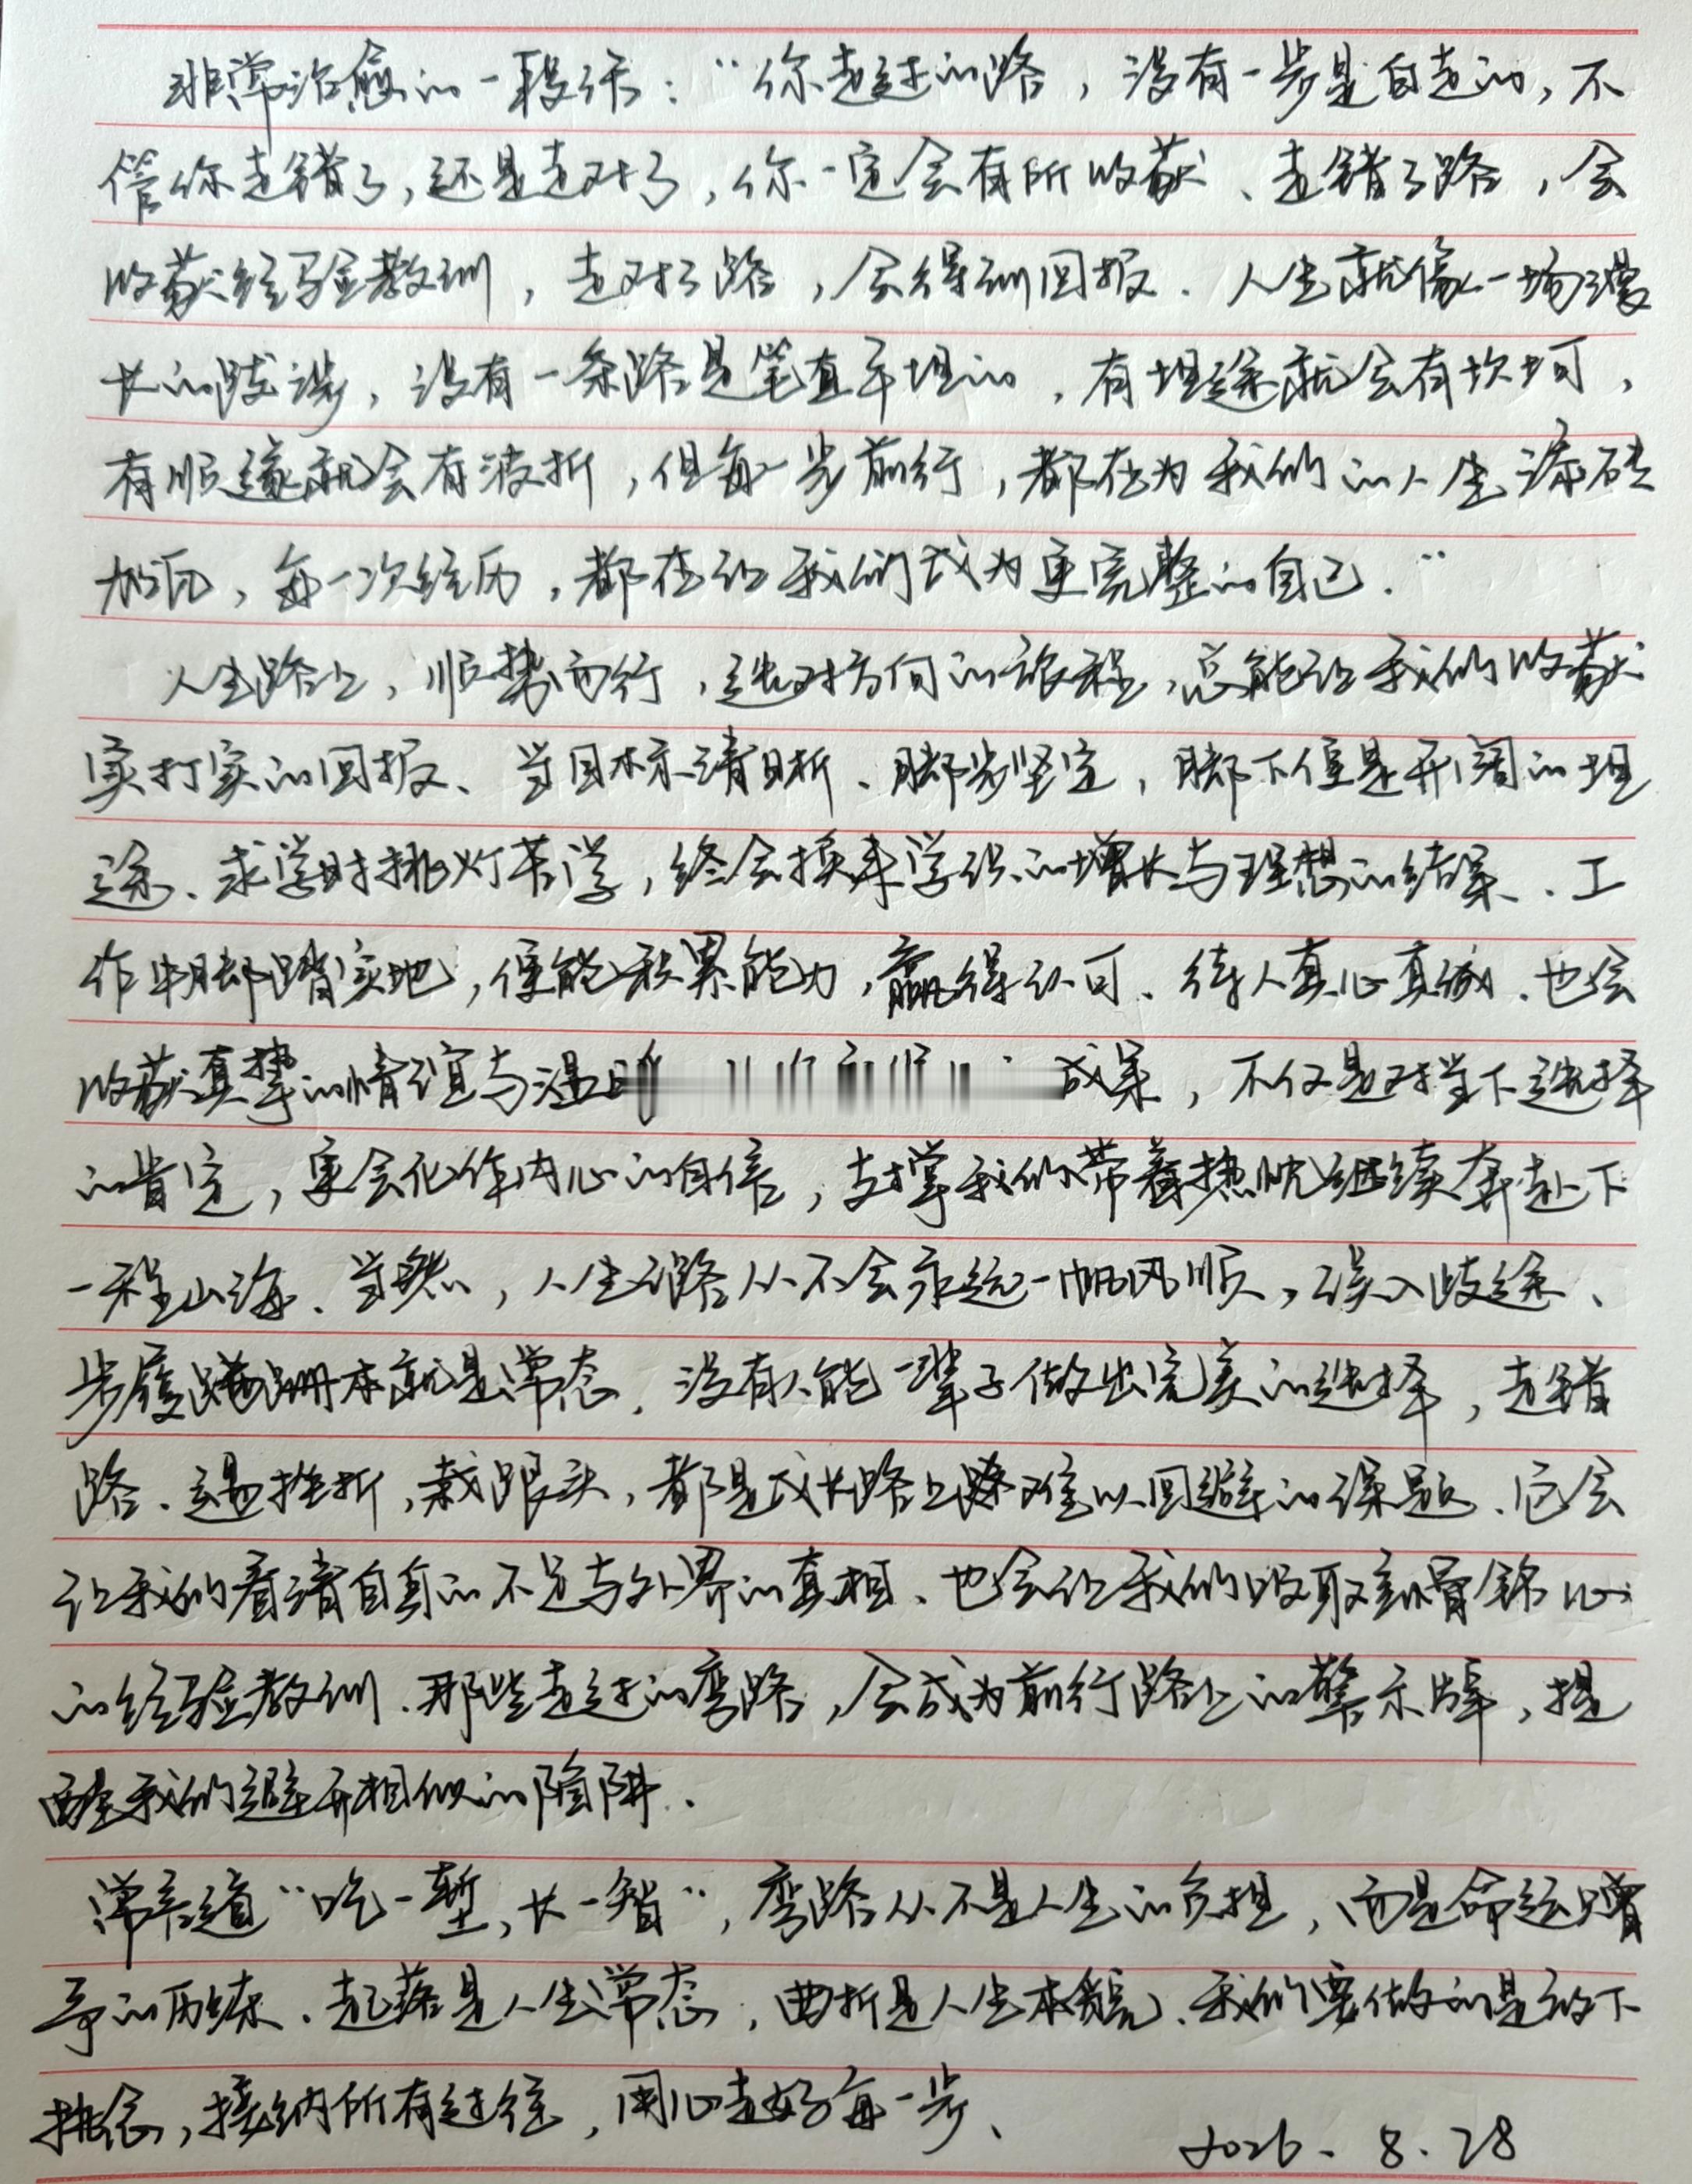 非常治愈的一段话：“你走过的路，没有一步是白走的，不
管你走错了，还是走对了，你一定会有所收获、走错了路，会
收获经验教训，走对了路，会得到回报．人生就像一场漫
长的跋涉，没有一条路是笔直平坦的，有坦途就会有坎坷，
有顺遂就会有波折，但每一步前行，都在为我们的人生添砖
加瓦，每一次经历，都在让我们成为更完整的自己．”
人生路上，顺势而行，选对方向的旅程，总能让我们收获
实打实的回报、当目标清晰、脚步坚定，脚下便是开阔的坦
途、求学时挑灯苦学，终会换来学识的增长与理想的结果、工
作中脚踏实地，便能积累能力，赢得认可、待人真心真诚、也会
收获真挚的情谊与温 成果，不仅是对当下选择
的肯定，更会化作内心的自信，支撑我们带着热忱继续奔赴下
一程山海、当然，人生之路从不会永远一帆风顺，误入歧途、
步履蹒跚本就是常态．没有人能一辈子做出完美的选择，走错
路、遇挫折，栽跟头，都是成长路上难以回避的课题、它会
让我们看清自身的不足与外界的真相、也会让我们吸取刻骨铭心
的经验教训．那些走过的弯路，会成为前行路上的警示牌，提
醒我们避开相似的陷阱．
常言道“吃一堑，长一智”，弯路从不是人生的负担，而是命运赠
予的历练、起落是人生常态，曲折是人生本貌、我们要做的是放下
执念，接纳所有过往，用心走好每一步、
2026．8．28